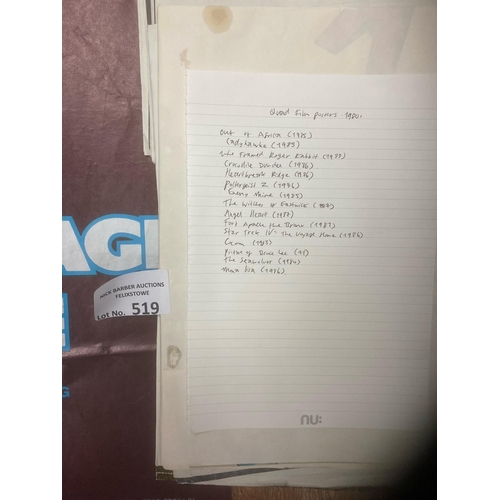 Quad Film posters 1980s
Out of Africa (1985)
Ladyhawke (1985)
Who Framed Roger Rabbit (1988)
Crocodile Dundee (1986)
Heartbreak Ridge (1986)
Poltergeist 2 (1986)
Enemy Mine (1985)
The Witches of Eastwick (1987)
Angel Heart (1987)
Fort Apache the Bronx (1981)
Star Trek IV: The Voyage Home (1986)
(1985)
of Bruce Lee
The (1980)
Mona Lisa (1986)
nu:
AG
G
NICK BARBER AUCTIONS
FELIXSTOWE
Lot No. 519